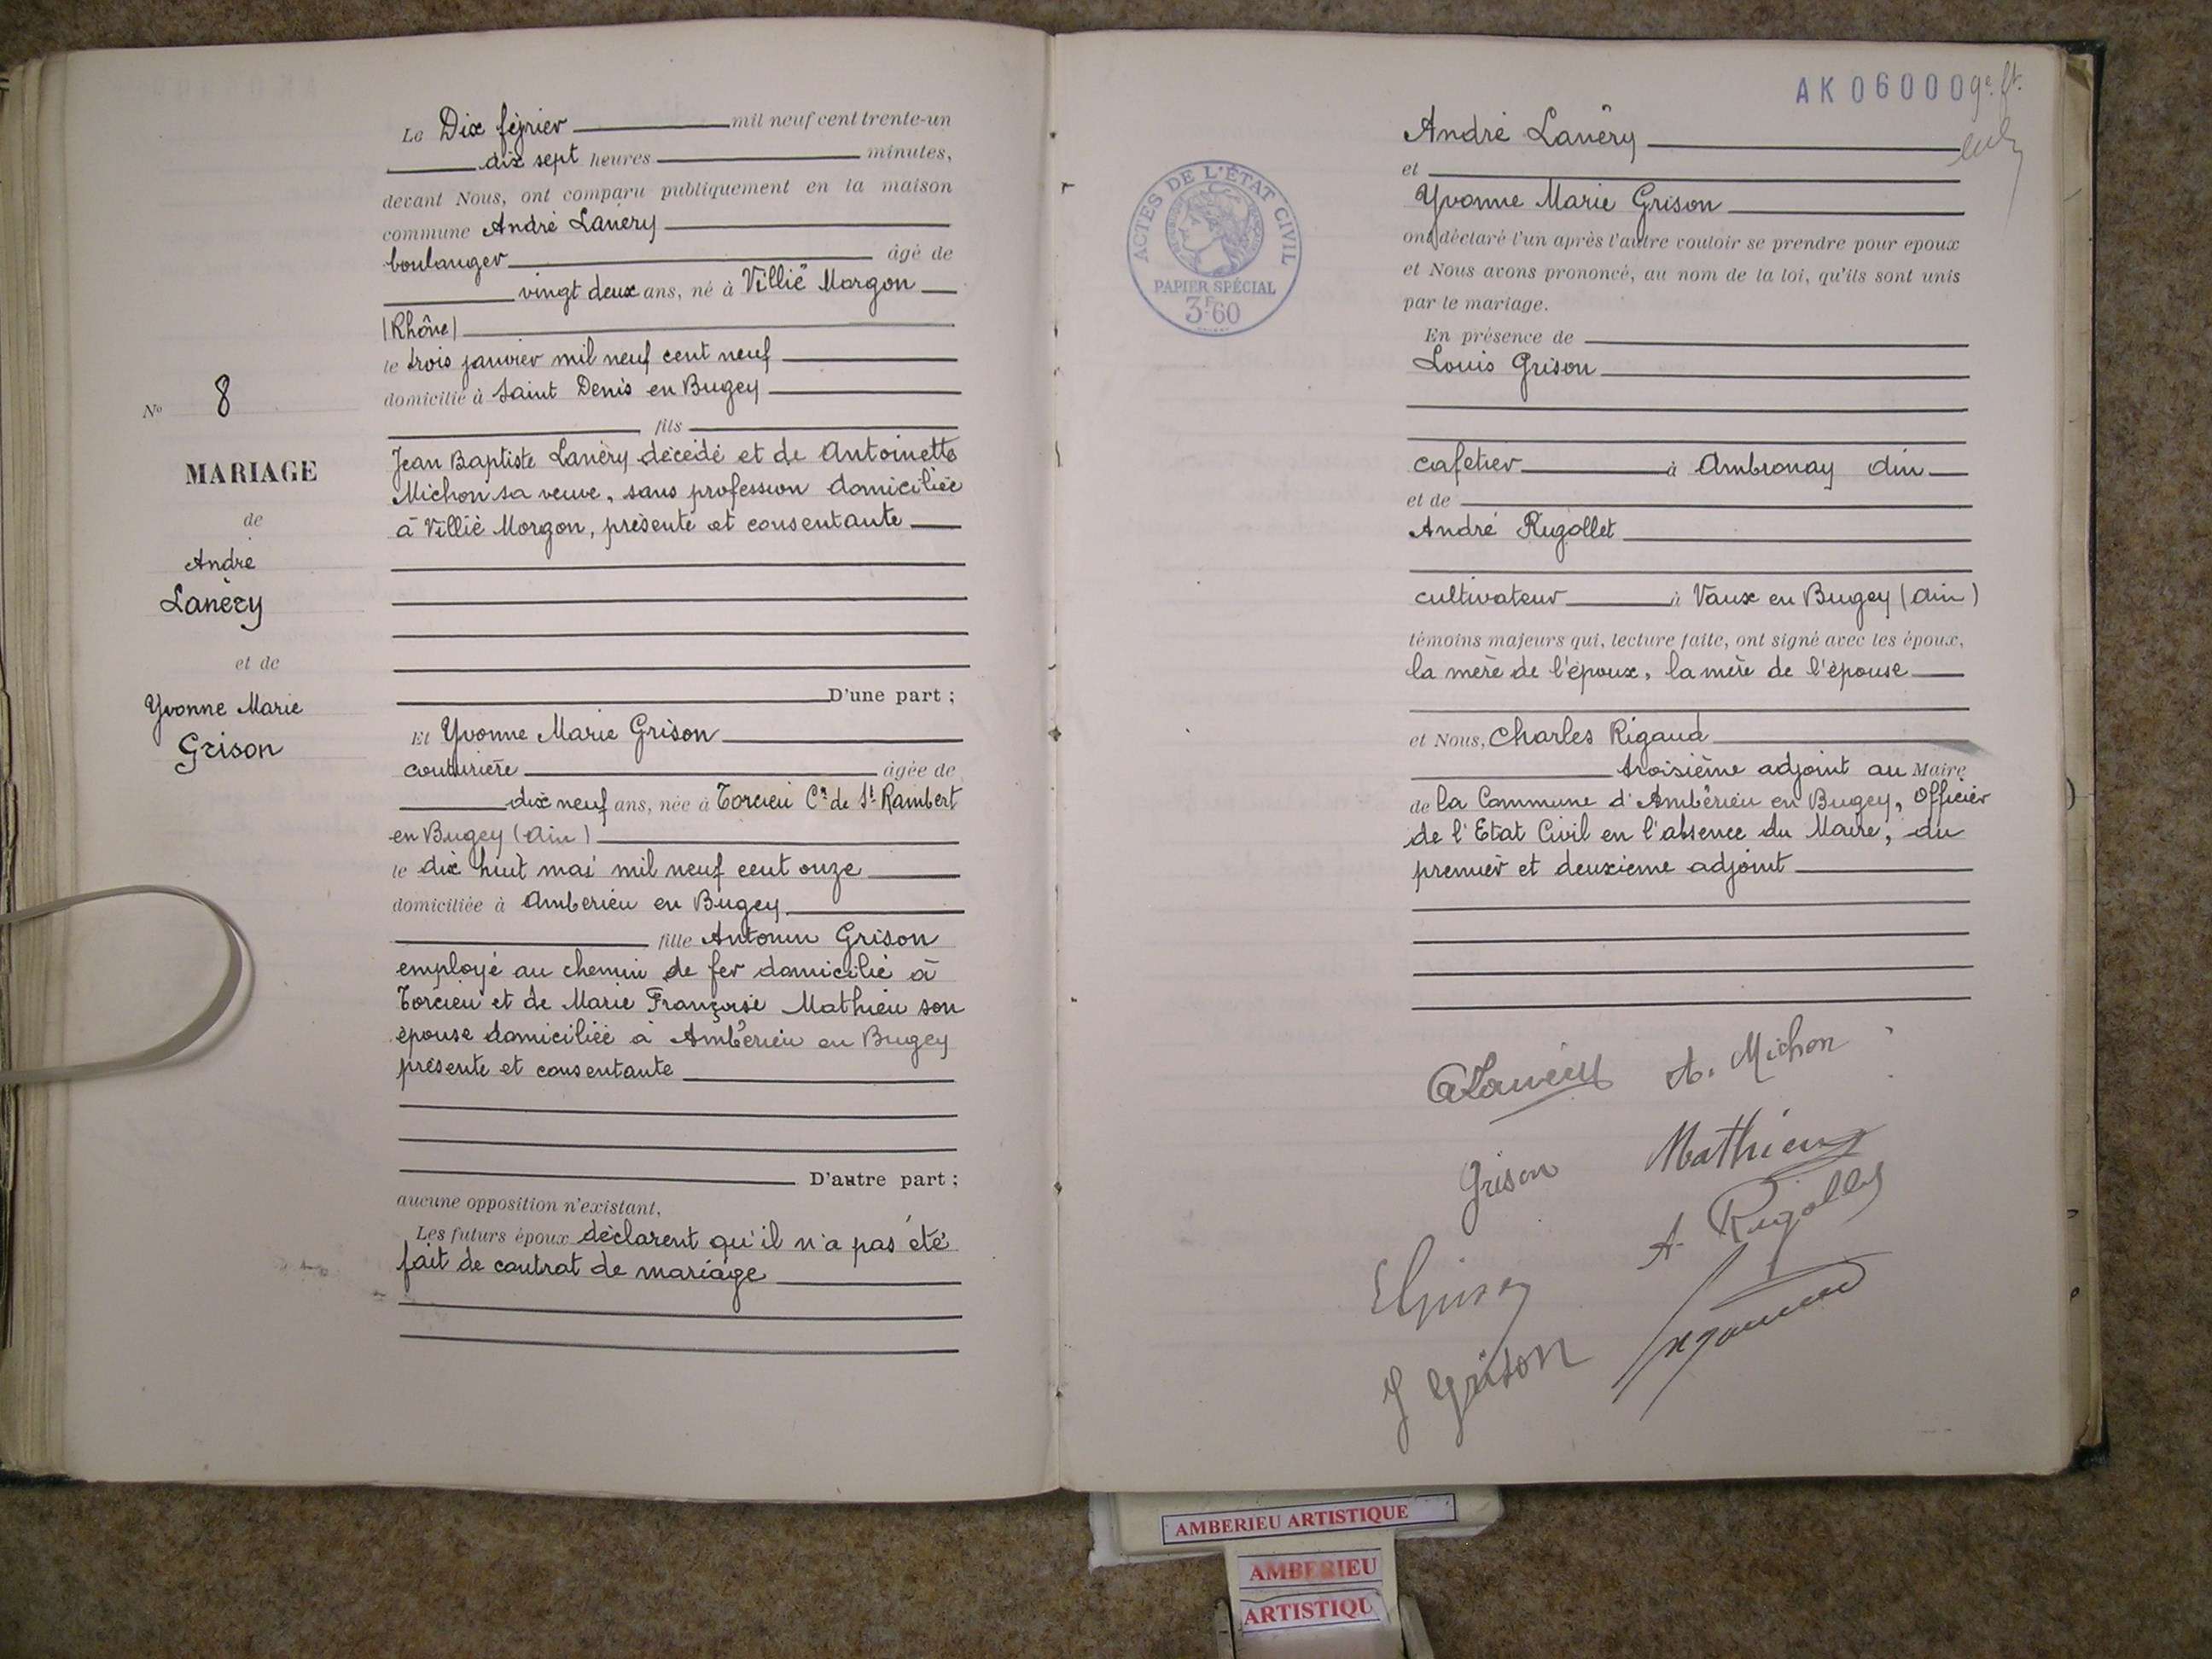 Le Dix février mil neuf cent trente-un
dix sept heures minutes,
devant Nous, ont comparu publiquement en la maison
commune André Lanéry
boulanger âgé de
vingt deux ans, né à Villié Morgon
(Rhône)
le trois janvier mil neuf cent neuf
domicilié à Saint Denis en Bugey
fils
Jean Baptiste Lanéry décédé et de Antoinette
Michon sa veuve, sans profession domiciliée
à Villié Morgon, présente et consentante
D'une part ;
Et Yvonne Marie Grison
couturière âgée de
dix neuf ans, née à Torcieu Cⁿ de Sᵗ Rambert
en Bugey (Ain)
le dix huit mai mil neuf cent onze
domiciliée à Ambérieu en Bugey
fille Antonin Grison
employé au chemin de fer domicilié à
Torcieu et de Marie Françoise Mathieu son
épouse domiciliée à Ambérieu en Bugey
présente et consentante
D'autre part ;
aucune opposition n'existant,
Les futurs époux déclarent qu'il n'a pas été
fait de contrat de mariage
Nº 8
MARIAGE
de
André
Lanéry
et de
Yvonne Marie
Grison
AK06000
André Lanéry
et
Yvonne Marie Grison
ont déclaré l'un après l'autre vouloir se prendre pour époux
et Nous avons prononcé, au nom de la loi, qu'ils sont unis
par le mariage.
En présence de
Louis Grison
cafetier à Ambronay Ain
et de
André Rigollet
cultivateur à Vaux en Bugey (Ain)
témoins majeurs qui, lecture faite, ont signé avec les époux,
la mère de l'époux, la mère de l'épouse
et Nous, Charles Rigaud
troisième adjoint au Maire
de la Commune d'Ambérieu en Bugey, Officier
de l'Etat Civil en l'absence du Maire, du
premier et deuxième adjoint
ACTES DE L'ÉTAT CIVIL
PAPIER SPÉCIAL
3F60
A Lanéry A. Michon
Grison Mathieu
A. Rigollet
Grison
AMBERIEU ARTISTIQUE
AMBERIEU
ARTISTIQU